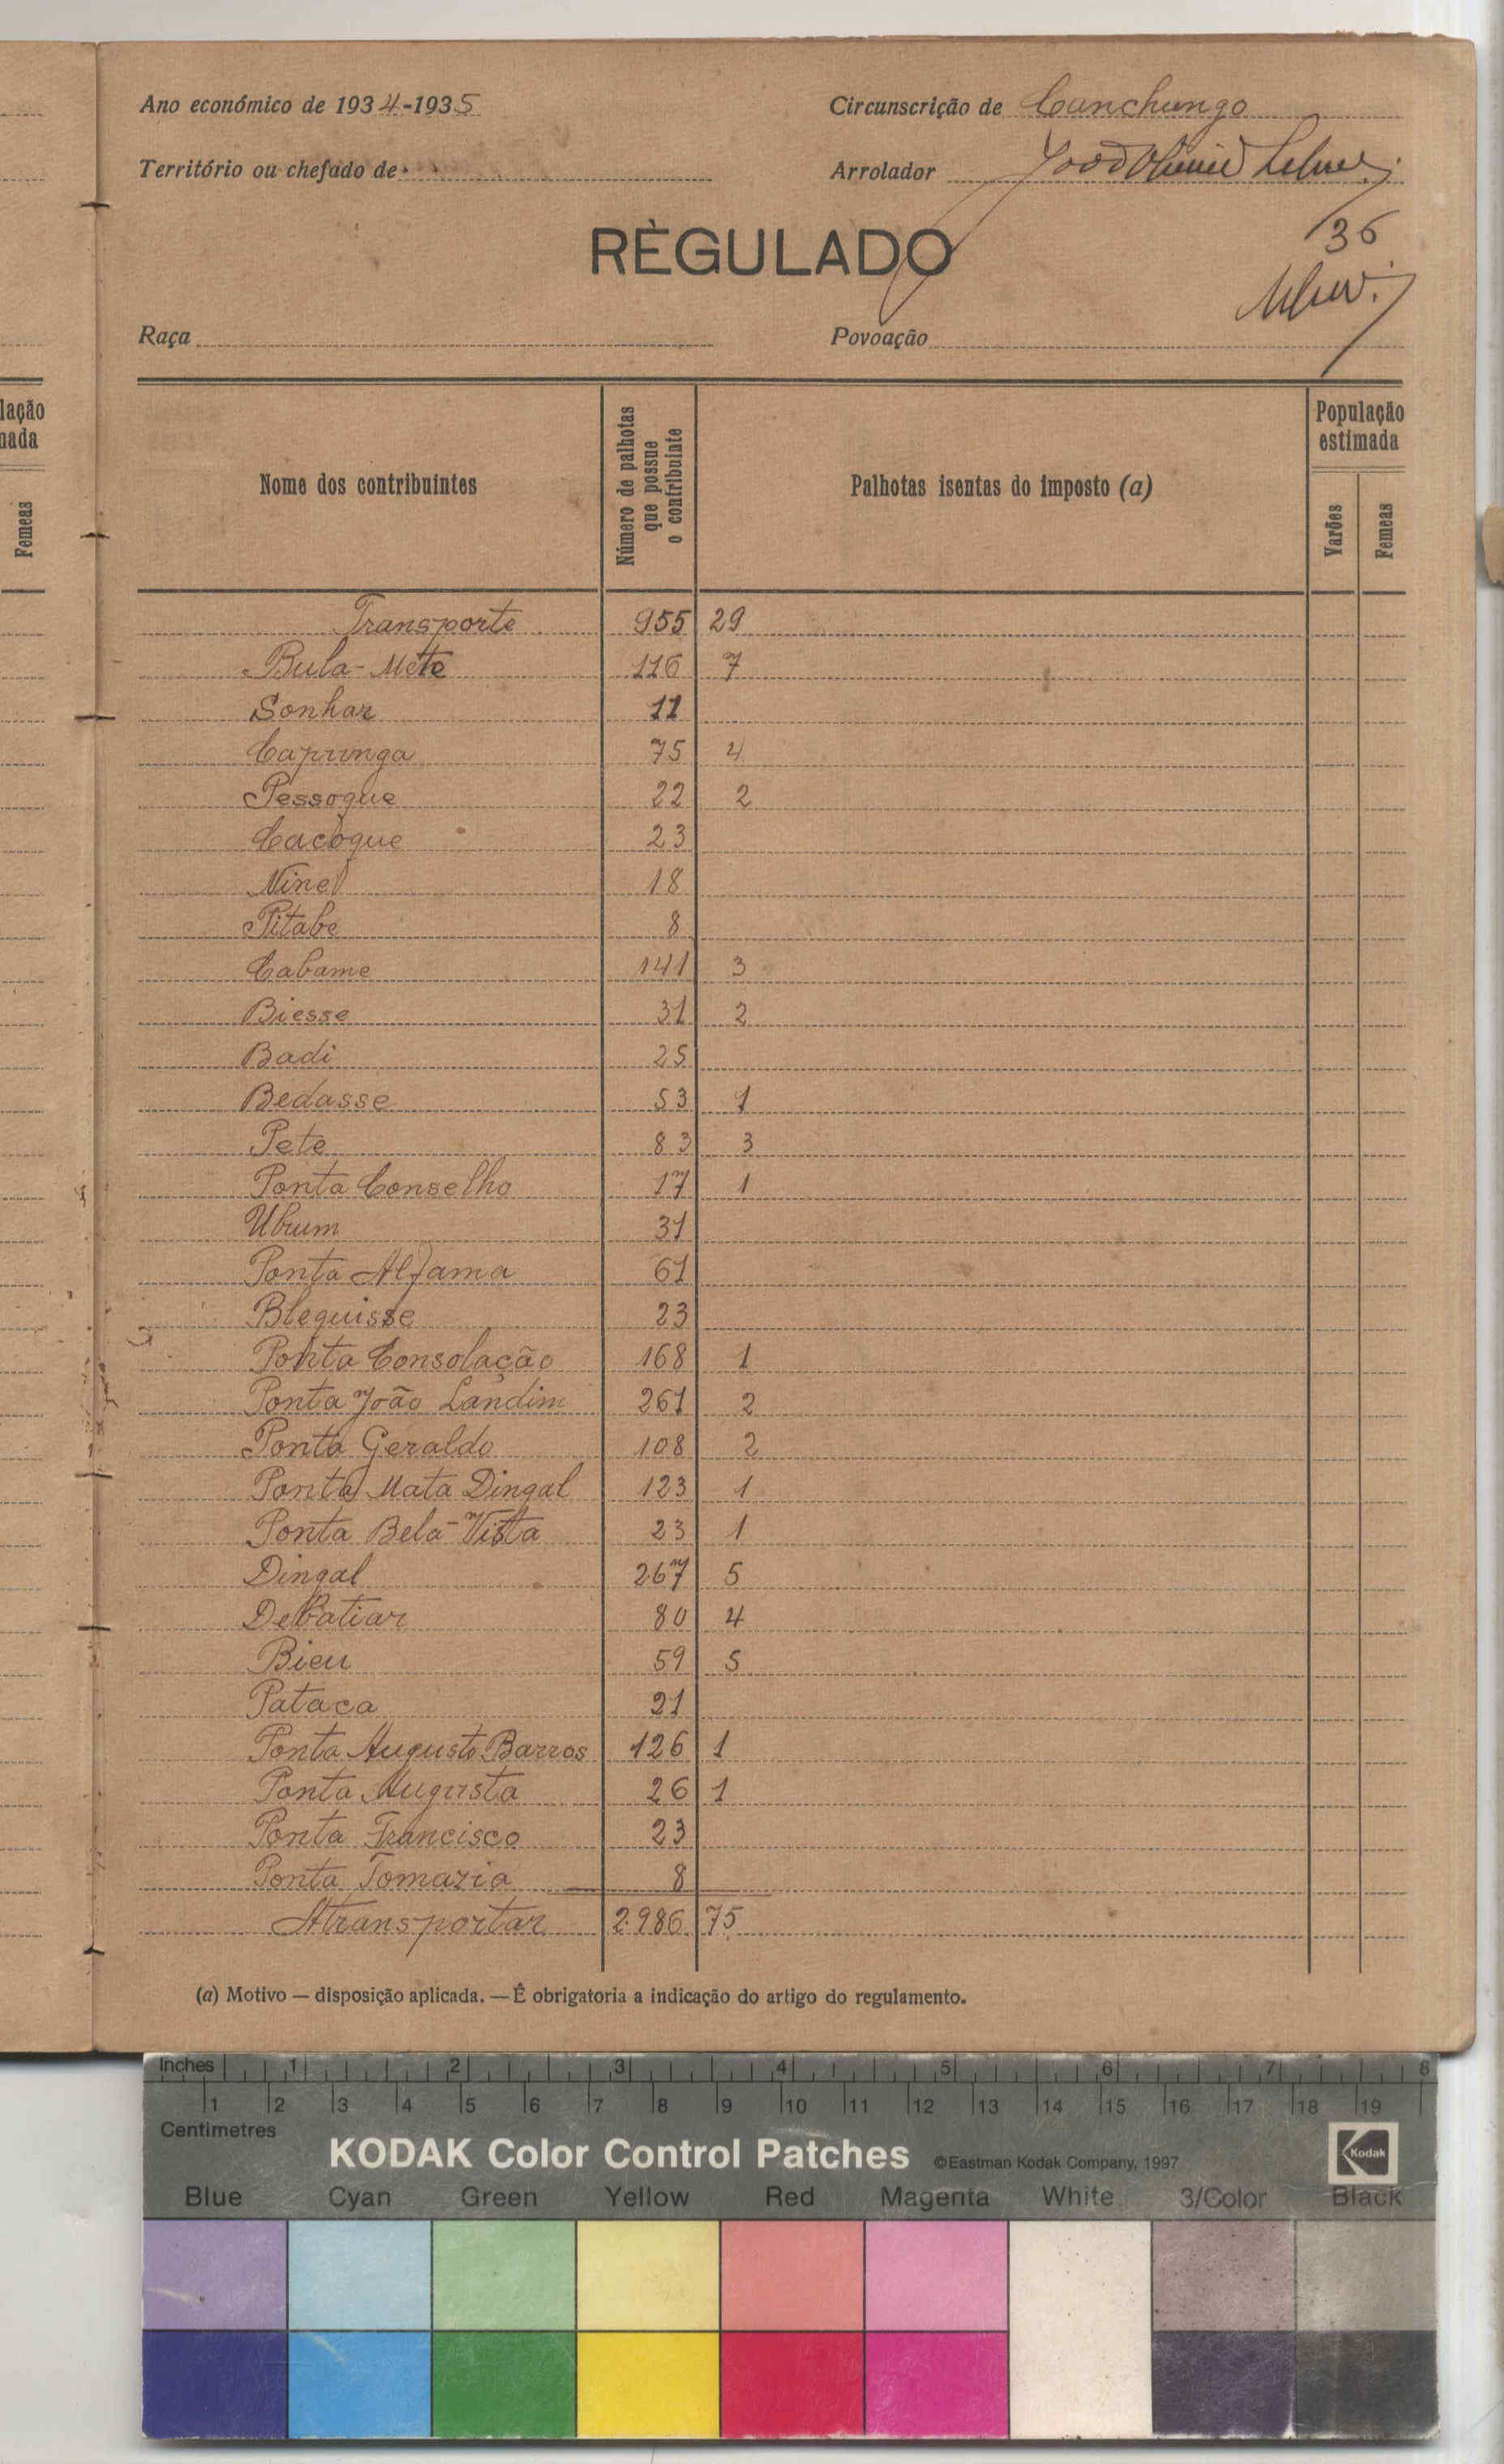 Ano económico de 1934-1935
Circunscrição de Canchungo
Território ou chefado de
Arrolador João
36
RÈGULADO
Raça
Povoação
lação
nada
Femeas
Nome dos contribuintes
Número de palhotas que possue o contribuinte
Palhotas isentas do imposto (a)
População estimada
Varões
Femeas
Transporte 955 29
Bula-Mete 116 7
Sonhar 11
Capunga 75 4
Pessogue 22 2
Cacògue 23
Ninel 18
Pitabe 8
Cabame 141 3
Biesse 31 2
Badi 25
Bedasse 53 1
Pete 83 3
Ponta Conselho 17 1
Ubum 31
Ponta Alfama 61
Bleguisse 23
Ponta Consolação 168 1
Ponta João Landim 261 2
Ponta Geraldo 108 2
Ponta Mata Dingal 123 1
Ponta Bela-Vista 23 1
Dingal 267 5
DeBatiar 80 4
Bieu 59 5
Pataca 21
Ponta Augusto Barros 126 1
Ponta Augusta 26 1
Ponta Francisco 23
Ponta Tomazia 8
Atransportar 2.986 75
(a) Motivo — disposição aplicada. — É obrigatoria a indicação do artigo do regulamento.
Inches 1 2 3 4 5 6 7 8
1 2 3 4 5 6 7 8 9 10 11 12 13 14 15 16 17 18 19
Centimetres
KODAK Color Control Patches ©Eastman Kodak Company, 1997 Kodak
Blue Cyan Green Yellow Red Magenta White 3/Color Black